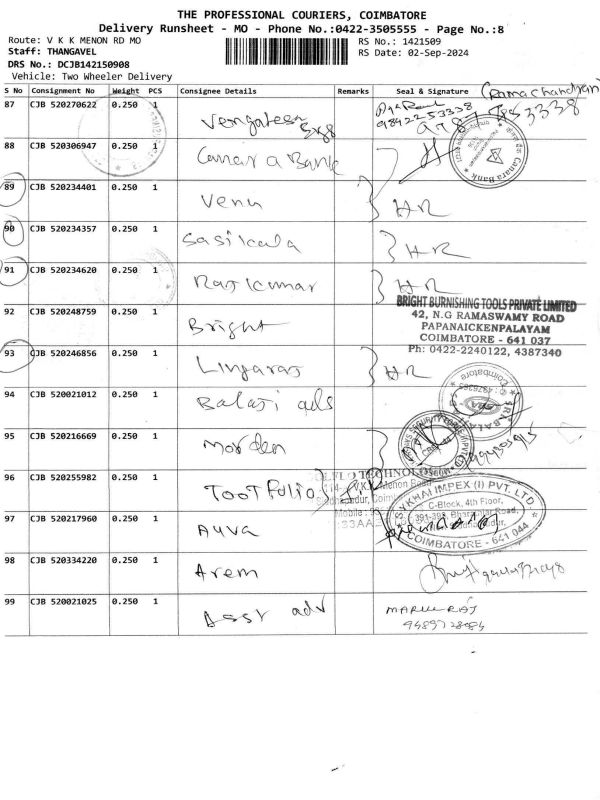 THE PROFESSIONAL COURIERS, COIMBATORE
Delivery Runsheet - MO - Phone No.:0422-3505555 - Page No.:8
Route: V K K MENON RD MO
RS No.: 1421509
Staff: THANGAVEL
RS Date: 02-Sep-2024
DRS No.: DCJB142150908
Vehicle: Two Wheeler Delivery
S No Consignment No Weight PCS Consignee Details Remarks Seal & Signature
(Ramachandran)
87 CJB 520270622 0.250 1 Vengatesa
9842253338
88 CJB 520306947 0.250 1 Canara Bank
Canara Bank
89 CJB 520234401 0.250 1 Venu HR
90 CJB 520234357 0.250 1 Sasikala HR
91 CJB 520234620 0.250 1 Rajkumar HR
92 CJB 520248759 0.250 1 Bright
BRIGHT BURNISHING TOOLS PRIVATE LIMITED
42, N.G RAMASWAMY ROAD
PAPANAICKENPALAYAM
COIMBATORE - 641 037
Ph: 0422-2240122, 4387340
93 CJB 520246856 0.250 1 Lingaraj HR
94 CJB 520021012 0.250 1 Balaji ads
Coimbatore
95 CJB 520216669 0.250 1 Morden
96 CJB 520255982 0.250 1 Tootfolio
TECHNOLOG
Menon Road
SYKHAI IMPEX (I) PVT. LTD
C-Block, 4th Floor,
391-393, Bharathiar Road,
COIMBATORE - 641 044
97 CJB 520217960 0.250 1 Auva
98 CJB 520334220 0.250 1 Arem
99 CJB 520021025 0.250 1 Assr adv
MARUI RAJ
9489728084